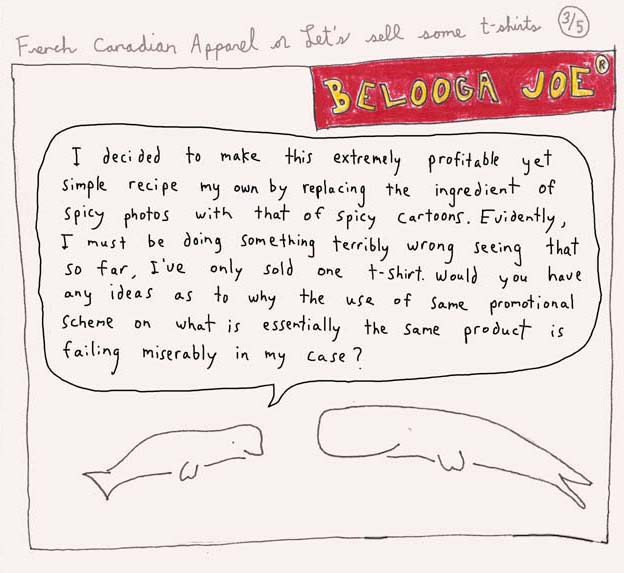 French Canadian Apparel or Let's sell some t-shirts 3/5
BELOOGA JOE®
I decided to make this extremely profitable yet
simple recipe my own by replacing the ingredient of
spicy photos with that of spicy cartoons. Evidently,
I must be doing something terribly wrong seeing that
so far, I've only sold one t-shirt. Would you have
any ideas as to why the use of same promotional
scheme on what is essentially the same product is
failing miserably in my case?